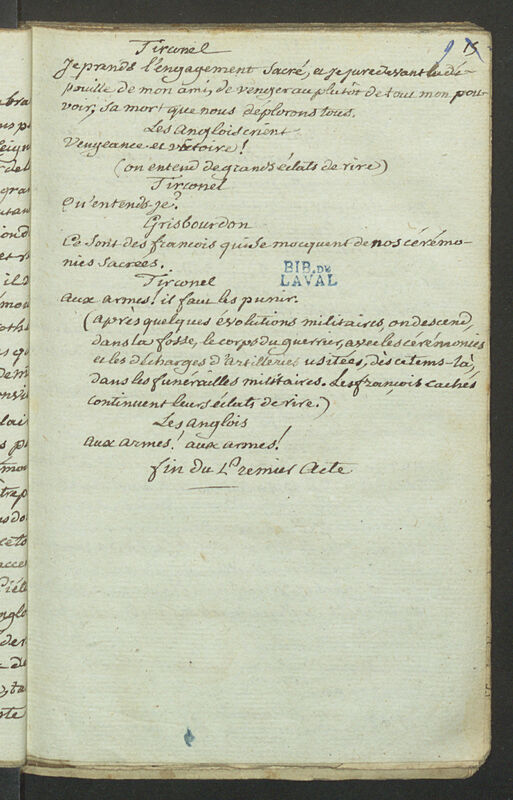 15
Tirconel
Je prends l'engagement sacré, et je jure devant la dé-
pouille de mon ami, de venger au plutôt de tout mon pou-
voir, sa mort que nous déplorons tous.
Les anglois crient
Vengeance et victoire!
(on entend de grands éclats de rire)
Tirconel
Qu'entends-je?
Grisbourdon
Ce sont des françois qui se mocquent de nos cérémo-
nies sacrées.
Tirconel
BIB. DE
LAVAL
aux armes! il faut les punir.
(après quelques évolutions militaires, on descend,
dans la fosse, le corps du guerrier, avec les cérémonies
et les décharges d'artilleries usitées, dès ce tems-là,
dans les funérailles militaires. Les françois cachés
continuent leurs éclats de rire.)
Les anglois
aux armes! aux armes!
fin du Premier Acte